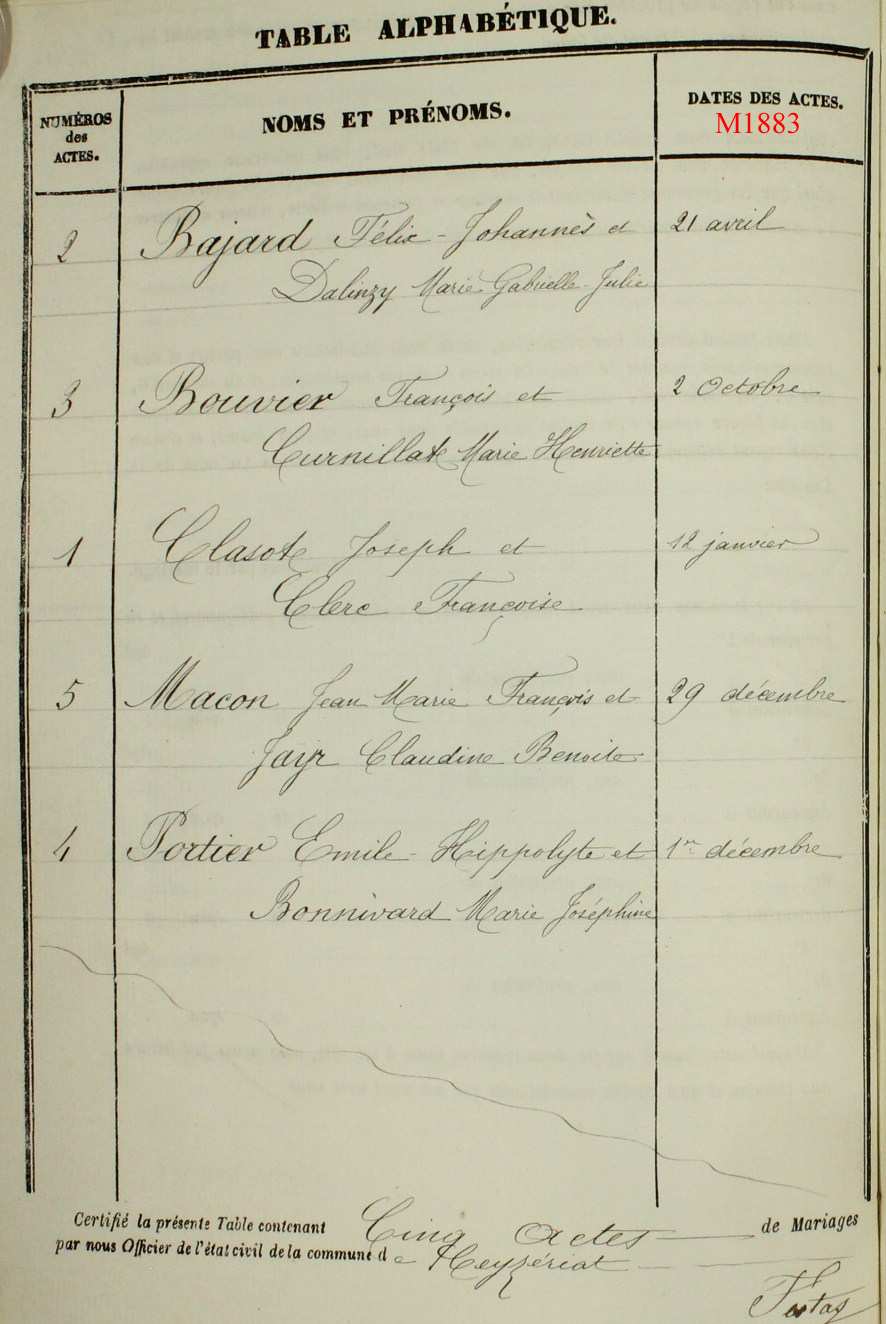 TABLE ALPHABÉTIQUE.
NUMÉROS des ACTES. NOMS ET PRÉNOMS. DATES DES ACTES.
M1883
2 Bajard Félix-Johannès et 21 avril
Dalinzy Marie Gabrielle-Julie
3 Bouvier François et 2 Octobre
Curnillat Marie Henriette
1 Clasot Joseph et 12 janvier
Clerc Françoise
5 Macon Jean Marie François et 29 décembre
Jayr Claudine Benoite
4 Portier Emile-Hippolyte et 1er décembre
Bonnivard Marie Joséphine
Certifié la présente Table contenant Cinq Actes de Mariages
par nous Officier de l'état civil de la commune de Ceyzériat